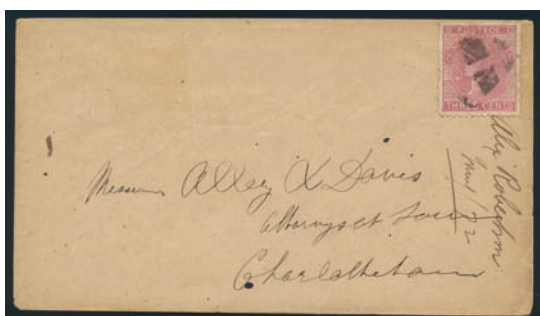 POSTAGE
THREE CENTS
Messrs Alley & Davis
Attorneys at Law
Charlottetown
Alex Robertson
/72